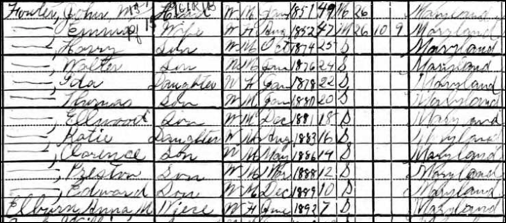 Fowler, John M Head W M Jan 1851 49 M 26 Maryland
—, Emma Wife W F Aug 1852 47 M 26 10 9 Maryland
—, Harry Son W M Oct 1874 25 S Maryland
—, Walter Son W M Jan 1876 24 S Maryland
—, Ida Daughter W F Jan 1878 22 S Maryland
—, Thomas Son W M Jan 1880 20 S Maryland
—, Ellwood Son W M Dec 1881 18 S Maryland
—, Katie Daughter W Aug 1883 16 S Maryland
—, Clarence Son W M May 1886 14 S Maryland
—, Preston Son W M Mar 1888 12 S Maryland
—, Edward Son W M Dec 1889 10 S Maryland
Elburn Anna M Niece W F June 1892 7 S Maryland